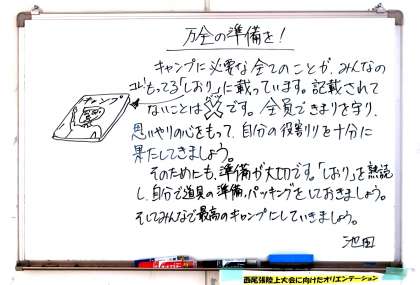 万全の準備を!
キャンプに必要な全てのことが、みんなの
もってる「しおり」に載っています。記載されて
ないことは✕です。全員できまりを守り、
思いやりの心をもって、自分の役割りを十分に
果たしてきましょう。
そのためにも、準備が大切です。「しおり」を熟読
し、自分で道具の準備、パッキングをしておきましょう。
そしてみんなで最高のキャンプにしていきましょう。
池田
キャンプ
西尾張陸上大会に向けたオリエンテーション